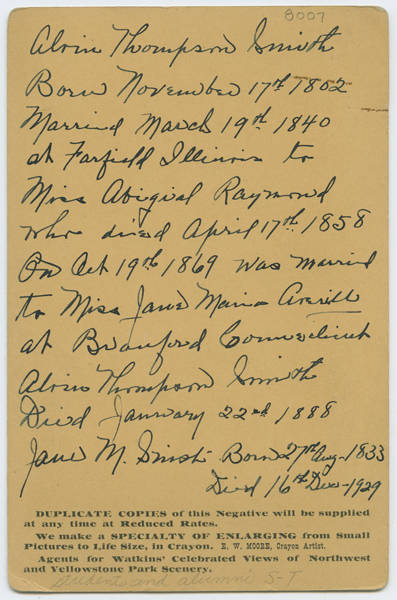 8007
Alvin Thompson Smith
Born November 17th 1802
Married March 19th 1840
at Farfield Illinois to
Miss Abigial Raymond
who died April 17th 1858
On Oct 19th 1869 was married
to Miss Jane Maria Averill
at Branford Connecticut
Alvin Thompson Smith
Died January 22nd 1888
Jane M. Smith Born 27th Aug-1833
Died 16th Dec-1929
DUPLICATE COPIES of this Negative will be supplied
at any time at Reduced Rates.
We make a SPECIALTY OF ENLARGING from Small
Pictures to Life Size, in Crayon. E. W. MOORE, Crayon Artist.
Agents for Watkins' Celebrated Views of Northwest
and Yellowstone Park Scenery.
students and alumni S-T